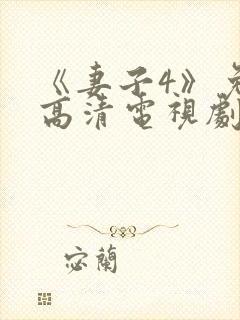 《妻子4》免
高清電視劇
宓蘭